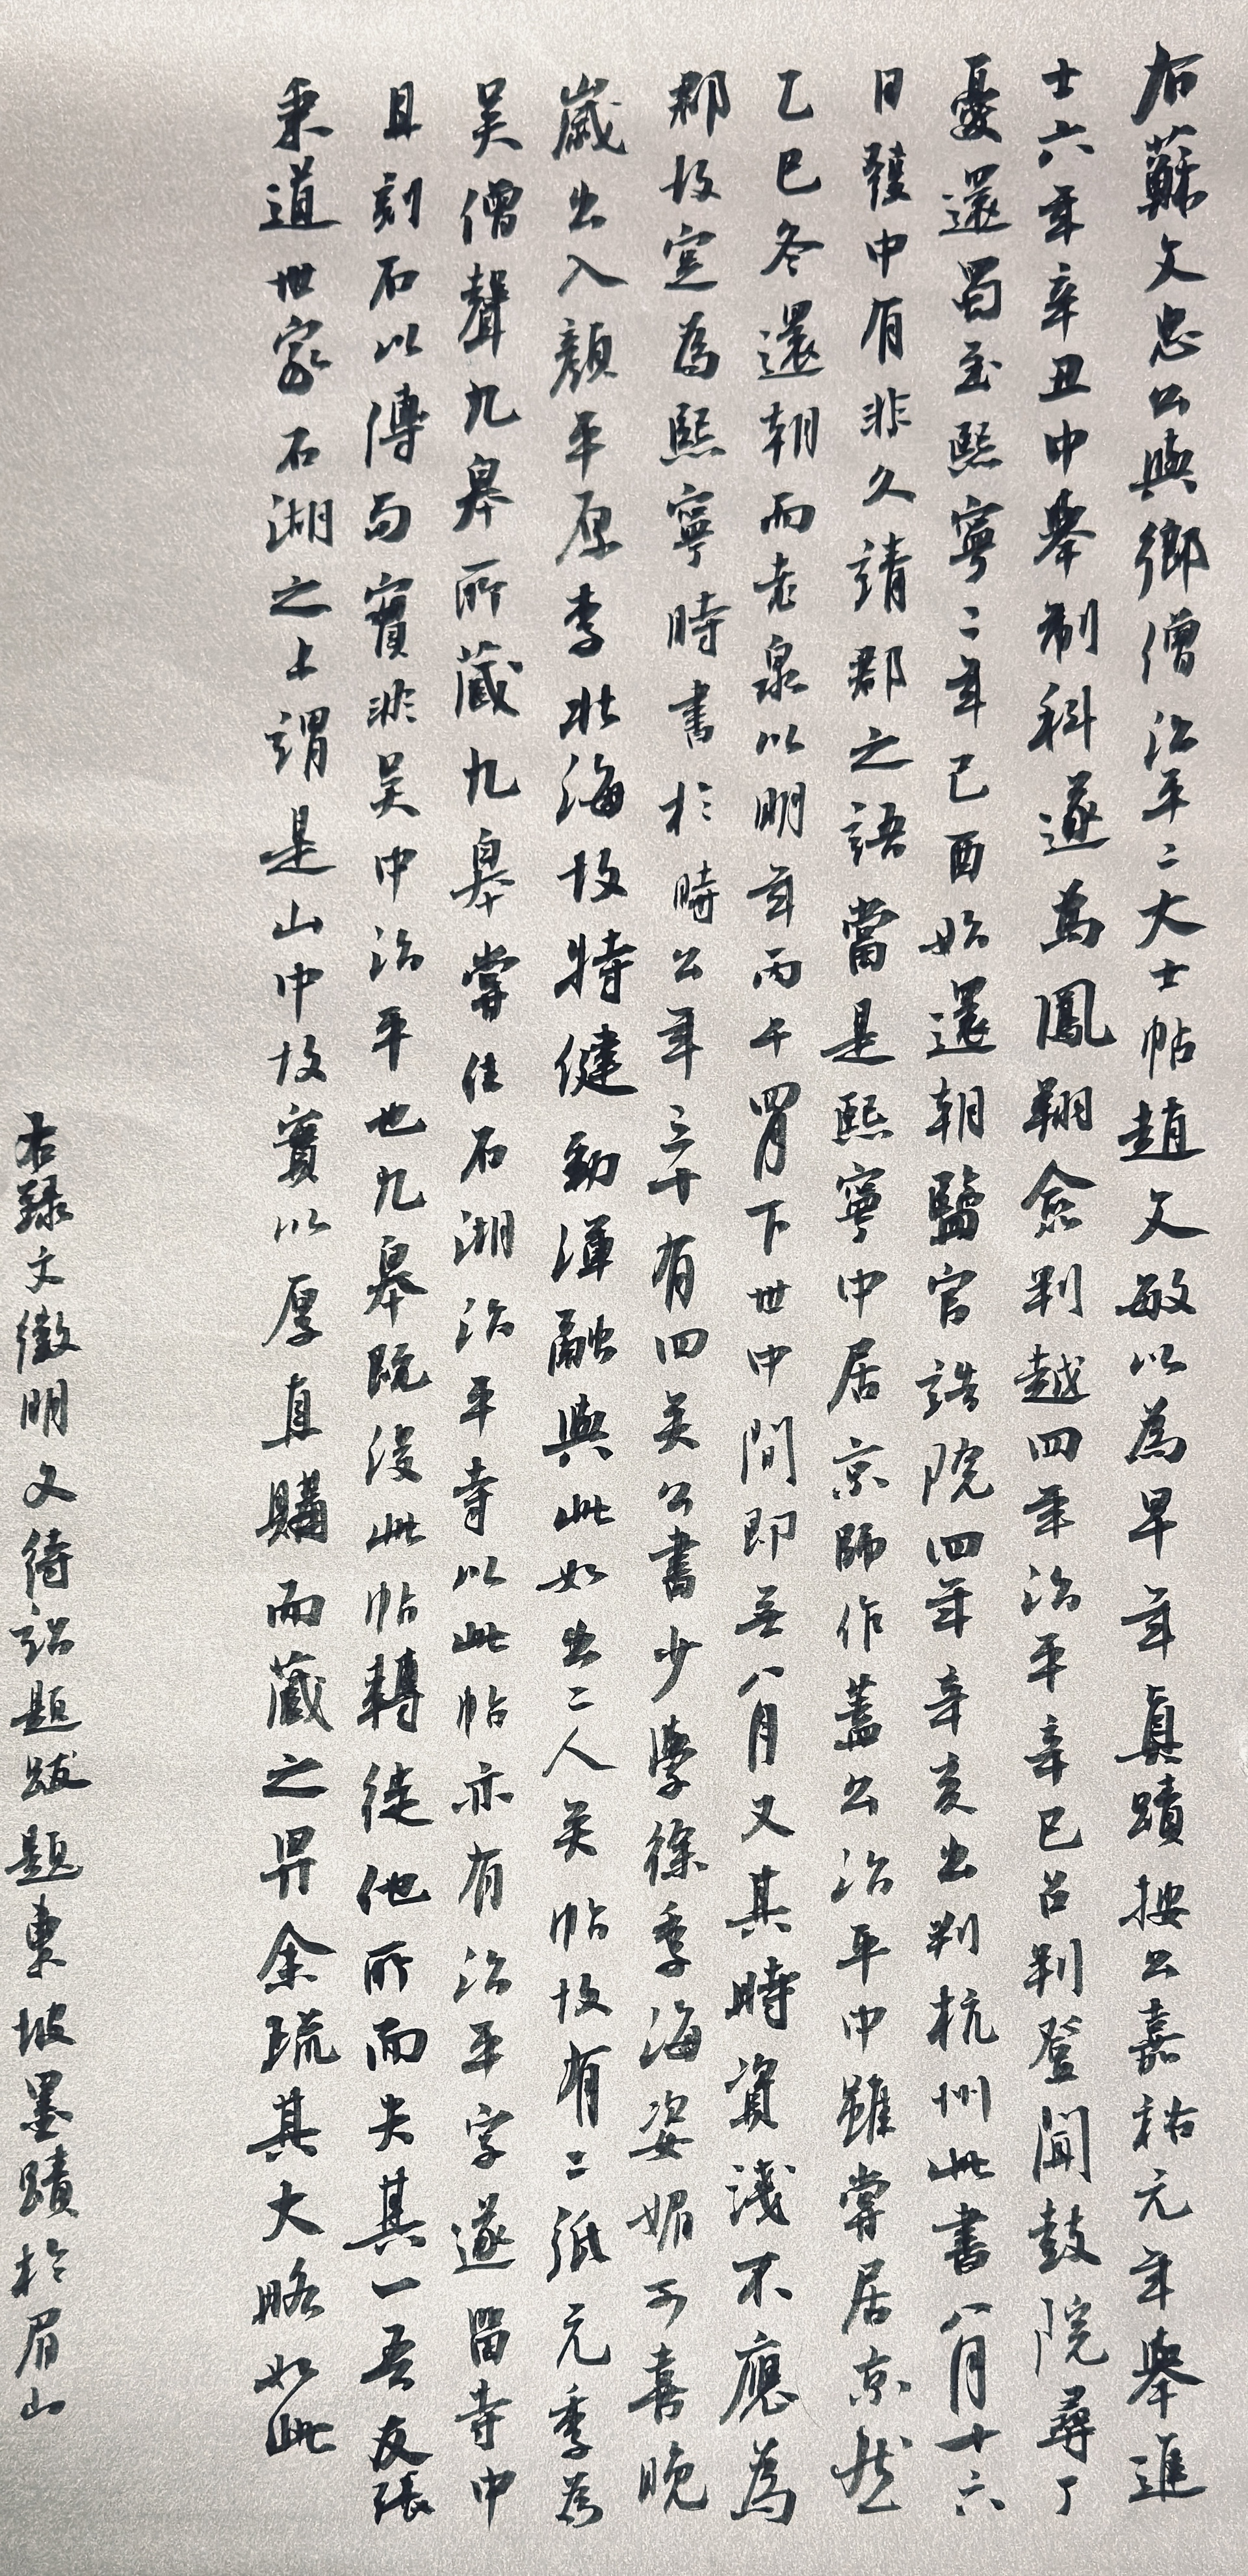 右蘇文忠公與鄉僧治平二大士帖趙文敏以為早年真蹟按公嘉祐元年舉進
士六年辛丑中舉制科遂為鳳翔僉判越四年治平辛巳召判登聞鼓院尋丁
憂還蜀至熙寧二年己酉始還朝監官誥院四年辛亥出判杭州此書八月十六
日發中有非久請郡之語當是熙寧中居京師作蓋公治平中雖嘗居京然
乙巳冬還朝而老泉以明年丙午四月下世中間即無八月又其時資淺不應為
郡故定為熙寧時書於時公年三十有四矣公書少學徐季海姿媚可喜晚
歲出入顏平原李北海故特健勁渾融與此如出二人矣帖故有二紙元季為
吴僧聲九皋所藏九皋嘗住石湖治平寺以此帖亦有治平字遂留寺中
且刻石以傳而實非吴中治平也九皋既没此帖轉徙他所而失其一吾友張
秉道世家石湖之上謂是山中故實以厚直購而藏之畀余疏其大略如此
右録文徵明文待詔題跋題東坡墨蹟於眉山